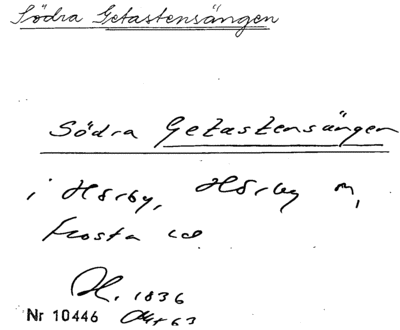 Södra Getastensängen
Södra Getastensängen
i Hörby, Hörby m,
Frosta hd
H. 1836
Nr 10446 Akt 63